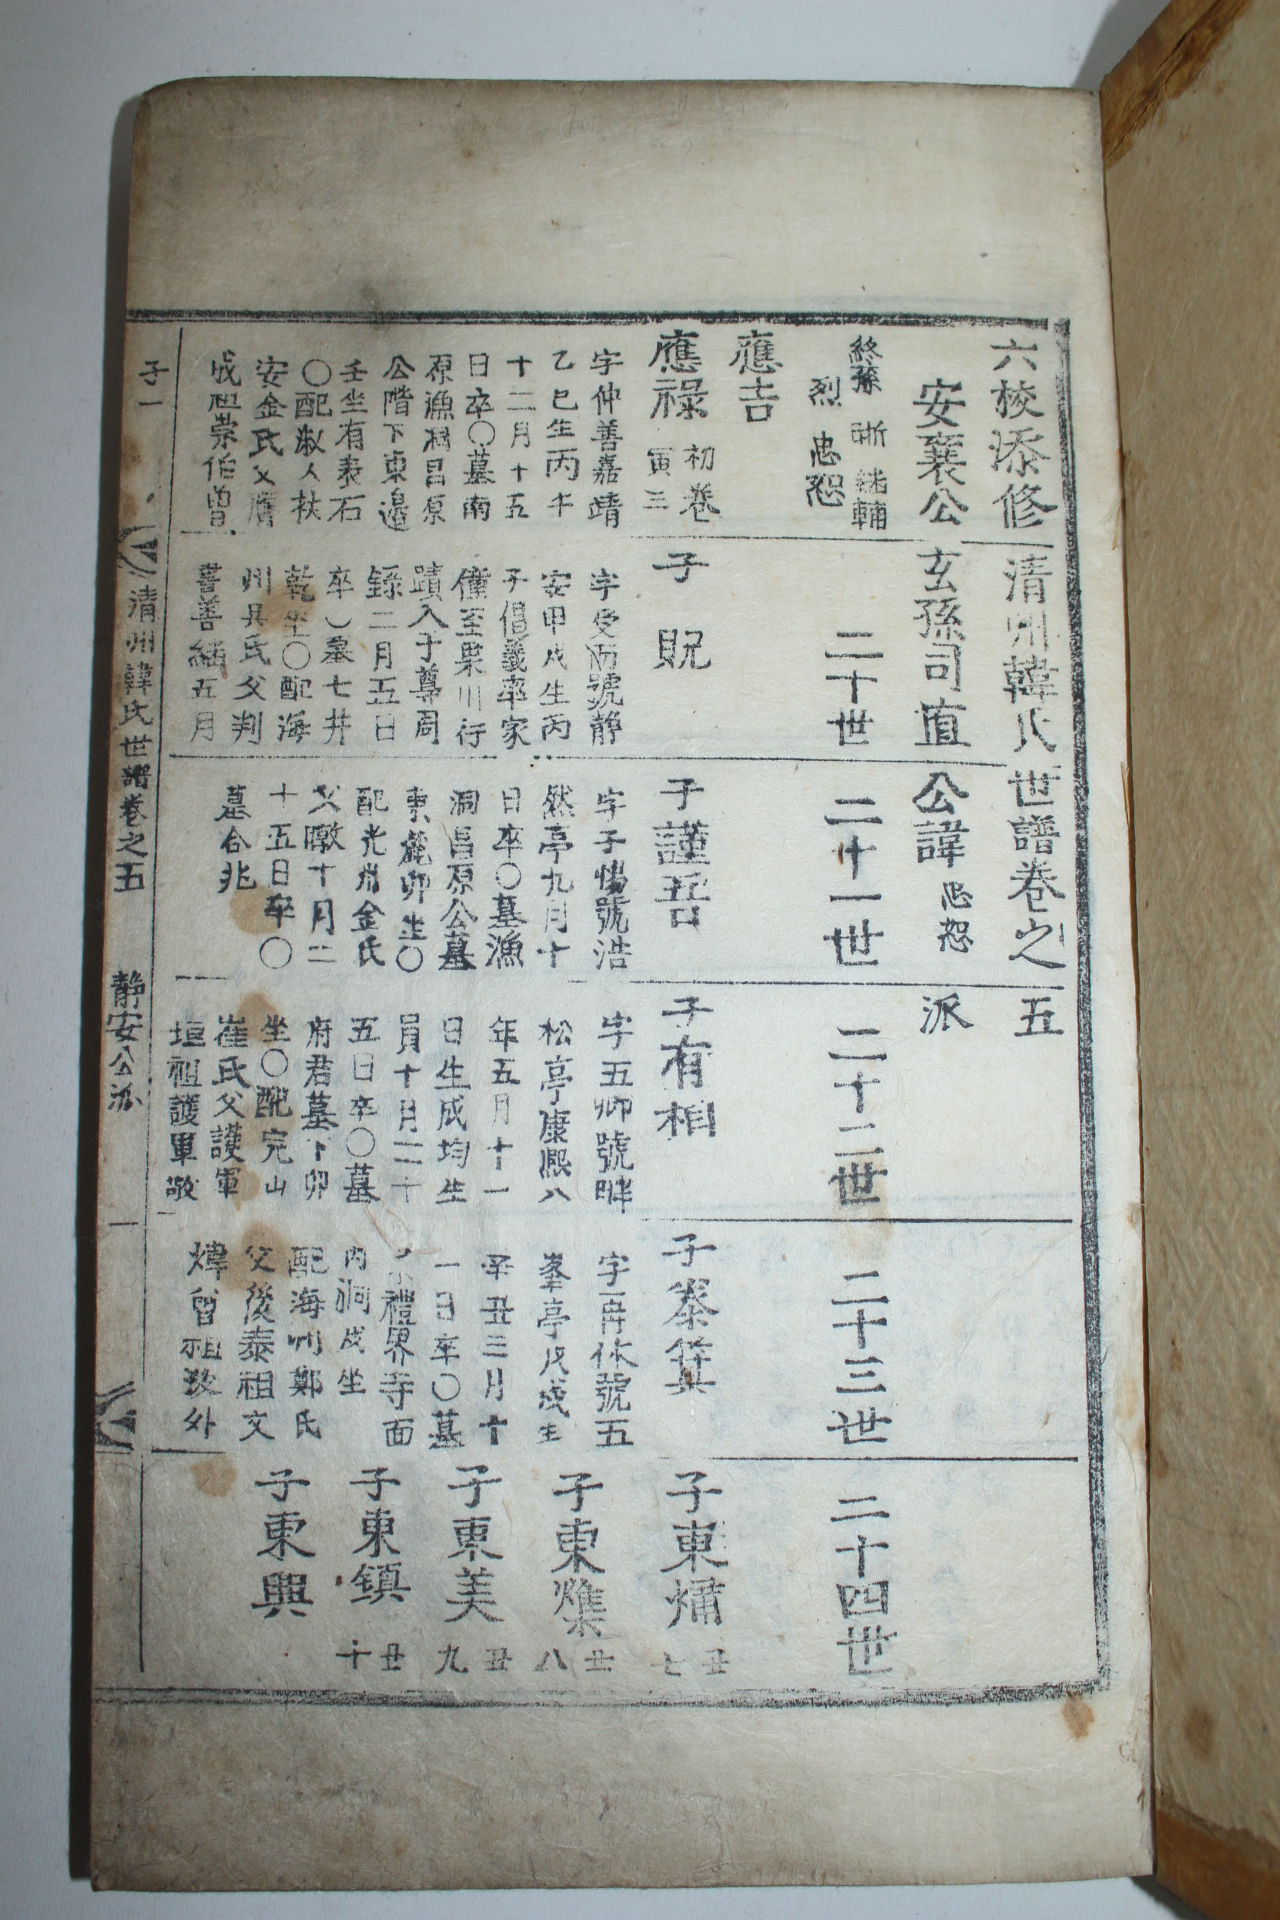 六校添修清州韓氏世譜卷之五
安襄公玄孫司直公諱忠恕派
終孫 晣 繼輔
烈 忠恕
二十世
二十一世
二十二世
二十三世
二十四世
應吉
應祿
初卷
寅三
字仲善嘉靖
乙巳生丙午
十二月十五
日卒〇墓南
原漁 昌原
公階下東邊
壬坐有表石
〇配淑人扶
安金氏父膺
成祖崇伯曾
子
貺
字受 號靜
安甲戌生丙
子倡義率家
僮至果川行
蹟入于尊周
錄二月五日
卒 墓七井
乾坐〇配海
州吳氏父判
書善繼五月
子謹吾
字子惕號浩
然亭九月十
日卒〇墓漁
洞昌原公墓
東麓卯坐〇
配光州金氏
父暾十月二
十五日卒〇
墓合兆
子有相
字五卿號畔
松亭康熙八
年五月十一
日生成均生
員十月二十
五日卒〇墓
府君墓下卯
坐〇配完山
崔氏父護軍
垣祖護軍敬
子泰箕
字再休號五
峯亭戊戌生
辛丑三月十
一日卒〇墓
禮界寺面
內洞戌坐
配海州鄭氏
父後泰祖文
煒曾祖 外
子東燫
丑七
子東㷮
丑八
子東美
丑九
子東鎮
丑十
子東興
子一
清州韓氏世譜卷之五
靜安公派
一